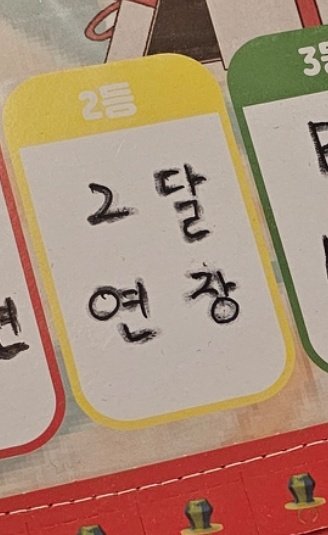 2등
2 달
연 장
3등